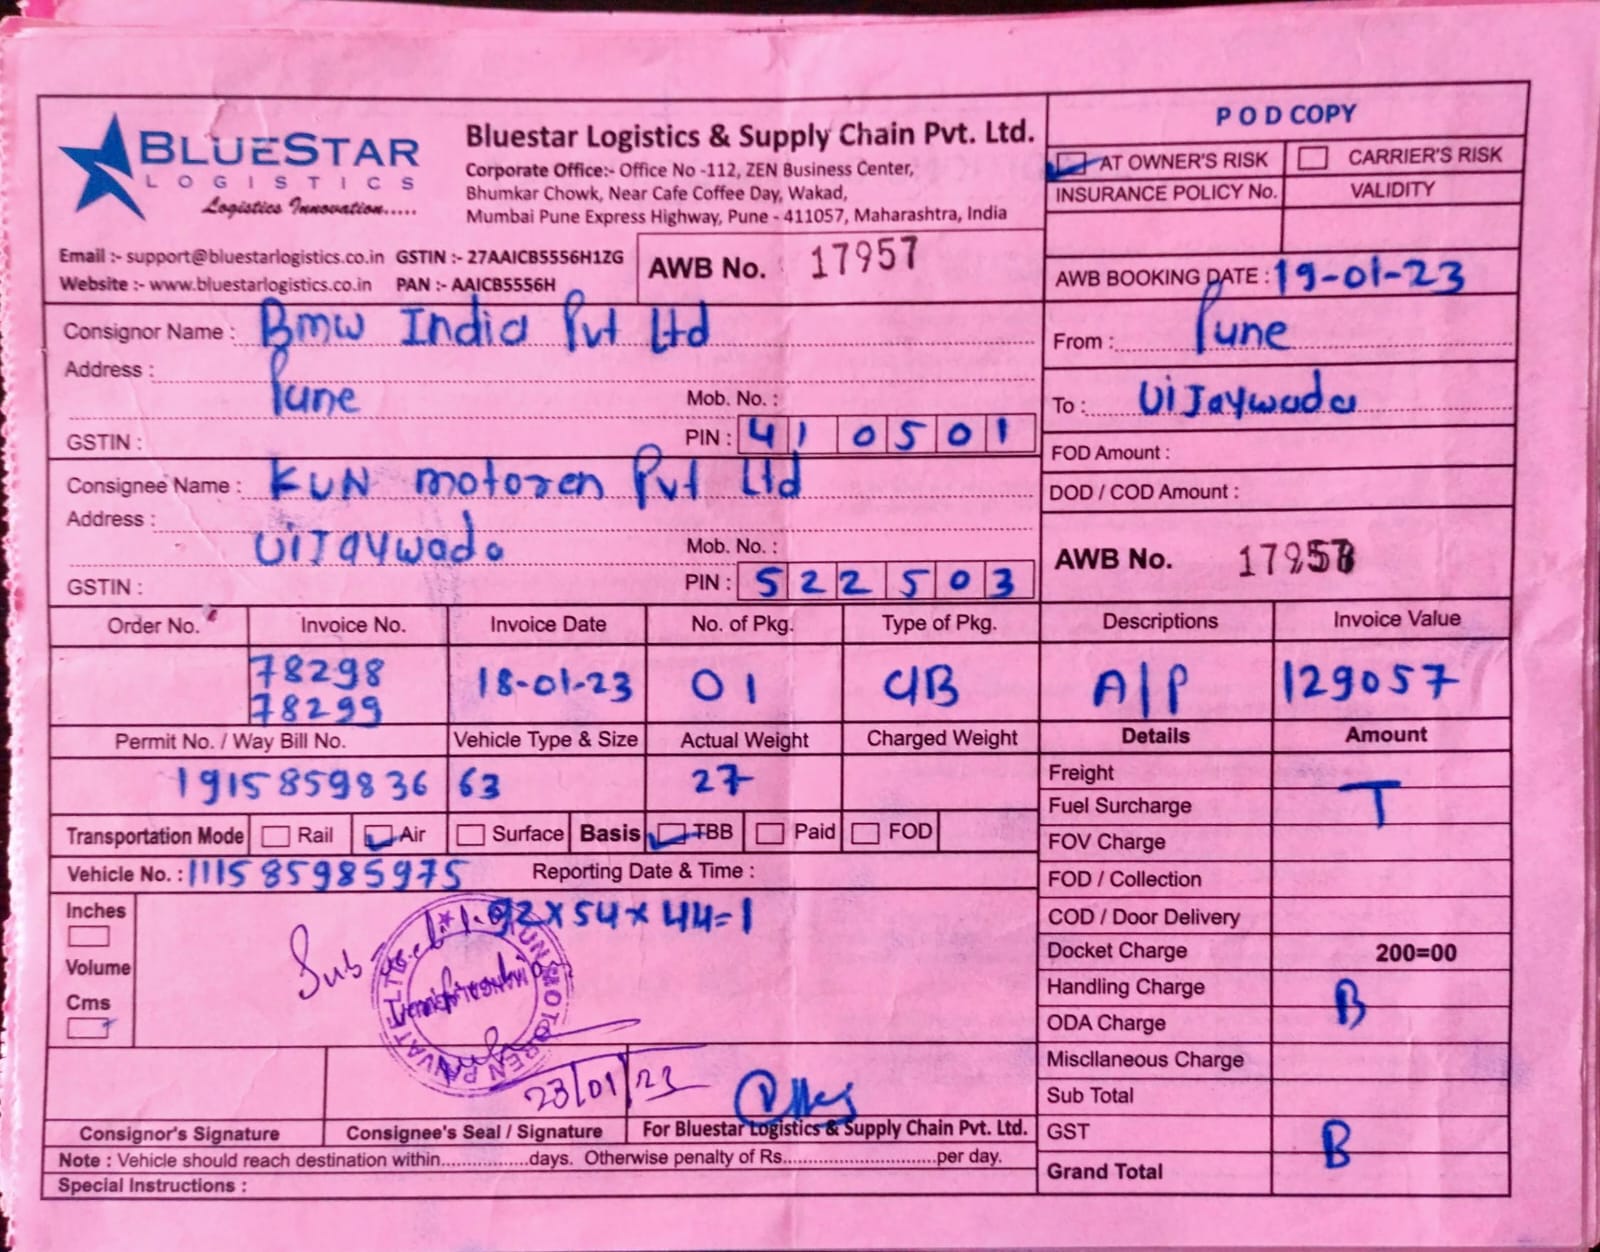 BLUESTAR
LOGISTICS
Logistics Innovation.....
Bluestar Logistics & Supply Chain Pvt. Ltd.
Corporate Office:- Office No -112, ZEN Business Center,
Bhumkar Chowk, Near Cafe Coffee Day, Wakad,
Mumbai Pune Express Highway, Pune - 411057, Maharashtra, India
Email :- support@bluestarlogistics.co.in GSTIN :- 27AAICB5556H1ZG
Website :- www.bluestarlogistics.co.in PAN :- AAICB5556H
AWB No. 17957
POD COPY
AT OWNER'S RISK CARRIER'S RISK
INSURANCE POLICY No. VALIDITY
AWB BOOKING DATE : 19-01-23
From : Pune
To : ViJaywada
FOD Amount :
DOD / COD Amount :
AWB No. 17957
Consignor Name : Bmw India Pvt Ltd
Address :
Pune
Mob. No. :
GSTIN :
PIN : 410501
Consignee Name : KUN motoren Pvt Ltd
Address :
ViJaywada
Mob. No. :
GSTIN :
PIN : 522503
Order No. Invoice No. Invoice Date No. of Pkg. Type of Pkg. Descriptions Invoice Value
78298 18-01-23 01 CIB A/P 129057
78299
Permit No. / Way Bill No. Vehicle Type & Size Actual Weight Charged Weight
1915859836 63 27
Transportation Mode Rail Air Surface Basis TBB Paid FOD
Vehicle No. : 111585985975 Reporting Date & Time :
Inches
Volume
Cms
92x54x44=1
KUN MOTOREN PRIVATE LTD
23/01/23
Consignor's Signature Consignee's Seal / Signature For Bluestar Logistics & Supply Chain Pvt. Ltd.
Note : Vehicle should reach destination within.................days. Otherwise penalty of Rs..............................per day.
Special Instructions :
Details Amount
Freight
Fuel Surcharge T
FOV Charge
FOD / Collection
COD / Door Delivery
Docket Charge 200=00
Handling Charge B
ODA Charge
Miscllaneous Charge
Sub Total
GST B
Grand Total